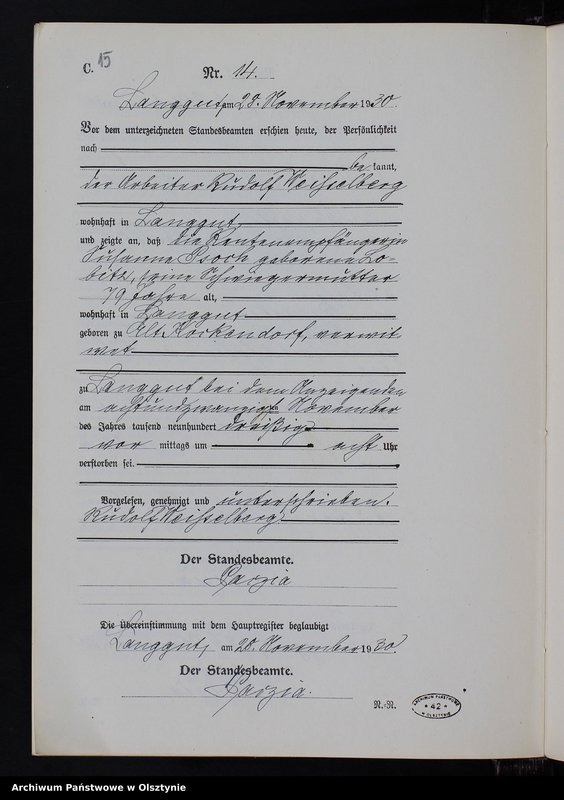 C. 15
Nr. 14.
Langgut, am 28. November 1930.
Vor dem unterzeichneten Standesbeamten erschien heute, der Persönlichkeit
nach
be kannt,
der Arbeiter Rudolf Weihselberg
wohnhaft in Langgut,
und zeigte an, daß die Rentenempfängerin
Susanne geborene Lo-
bitz, seine Schwiegermutter
79 Jahre alt,
wohnhaft in Langgut
geboren zu Alt, verwit-
wet
zu Langgut bei dem Anzeigenden
am achtundzwanzigsten November
des Jahres tausend neunhundert dreißig
vor mittags um acht Uhr
verstorben sei.
Vorgelesen, genehmigt und unterschrieben.
Rudolf Weihselberg
Der Standesbeamte.
Parzia
Die Übereinstimmung mit dem Hauptregister beglaubigt
Langgut, am 28. November 1930.
Der Standesbeamte.
Parzia.
N.-N.
ARCHIWUM PAŃSTWOWE
* 42 *
W OLSZTYNIE
Archiwum Państwowe w Olsztynie